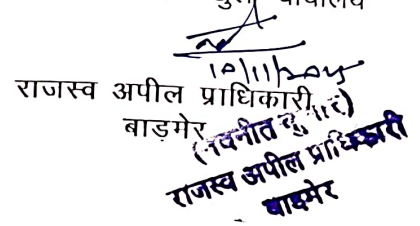 10/11/2025
राजस्व अपील प्राधिकारी
बाड़मेर
(नवनीत कुमार)
राजस्व अपील प्राधिकारी
बाड़मेर